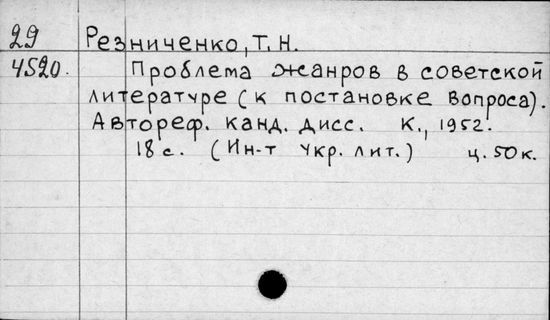 29 Резниченко, Т. Н.
4520. Проблема жанров в советской
литературе (к постановке вопроса).
Автореф. канд. дисс. К., 1952.
18 с. (Ин-т укр. лит.) ц. 50 к.